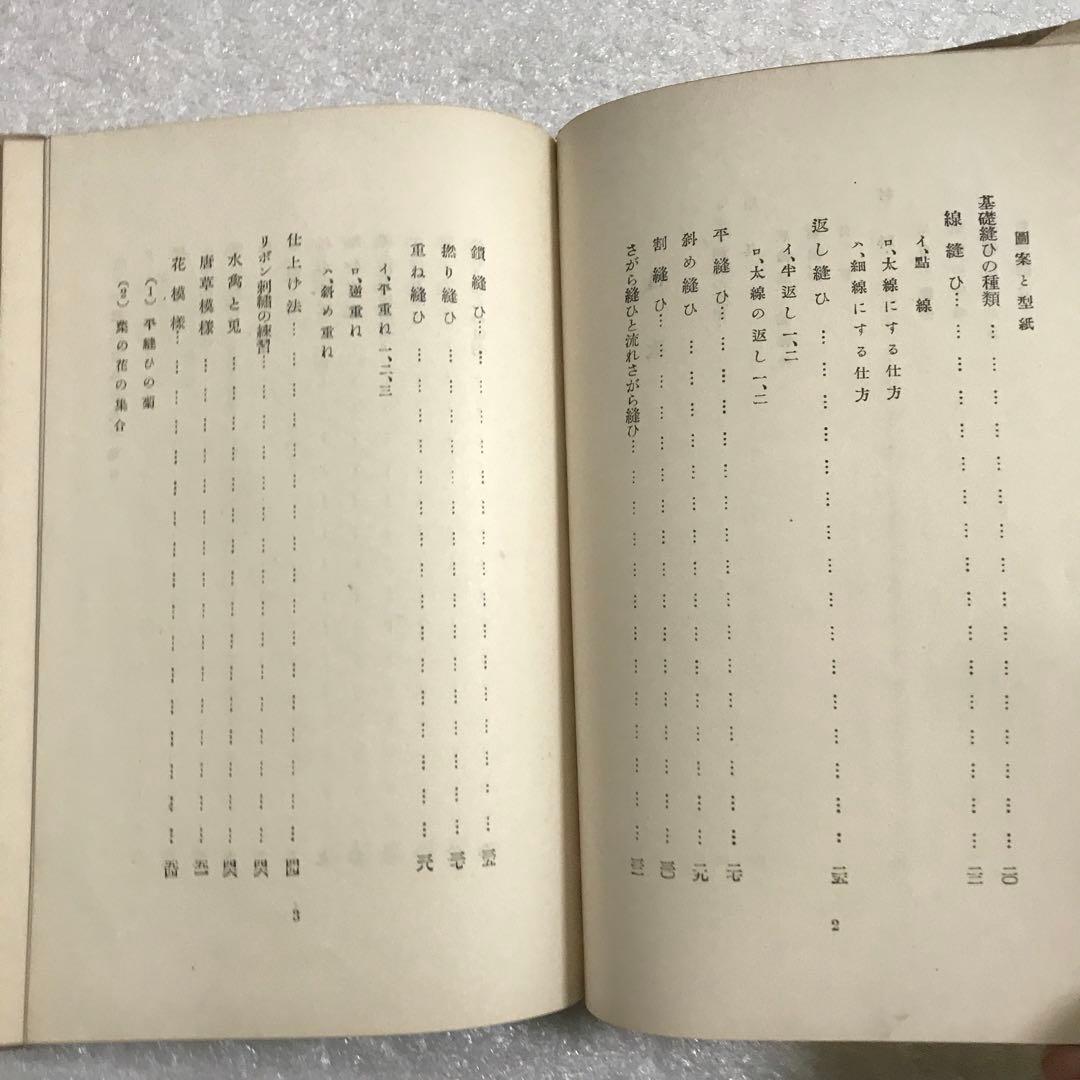 圖案と型紙
基礎縫ひの種類………………………………二〇
線縫ひ………………………………二二
イ、點線
ロ、太線にする仕方
ハ、細線にする仕方
返し縫ひ………………………………二五
イ、半返し一、二
ロ、太線の返し一、二
平縫ひ………………………………二七
斜め縫ひ………………………………二九
割縫ひ………………………………三〇
さがら縫ひと流れさがら縫ひ………………………………三二
2
鎖縫ひ………………………………三五
撚り縫ひ………………………………三七
重ね縫ひ………………………………三八
イ、平重ね一、二、三
ロ、逆重ね
ハ、斜め重ね
仕上げ法………………………………四四
リボン刺繡の練習………………………………四六
水禽と兎………………………………四六
唐草模樣………………………………五一
花模樣………………………………五四
(1) 平縫ひの菊
(2) 葉の花の集合
3